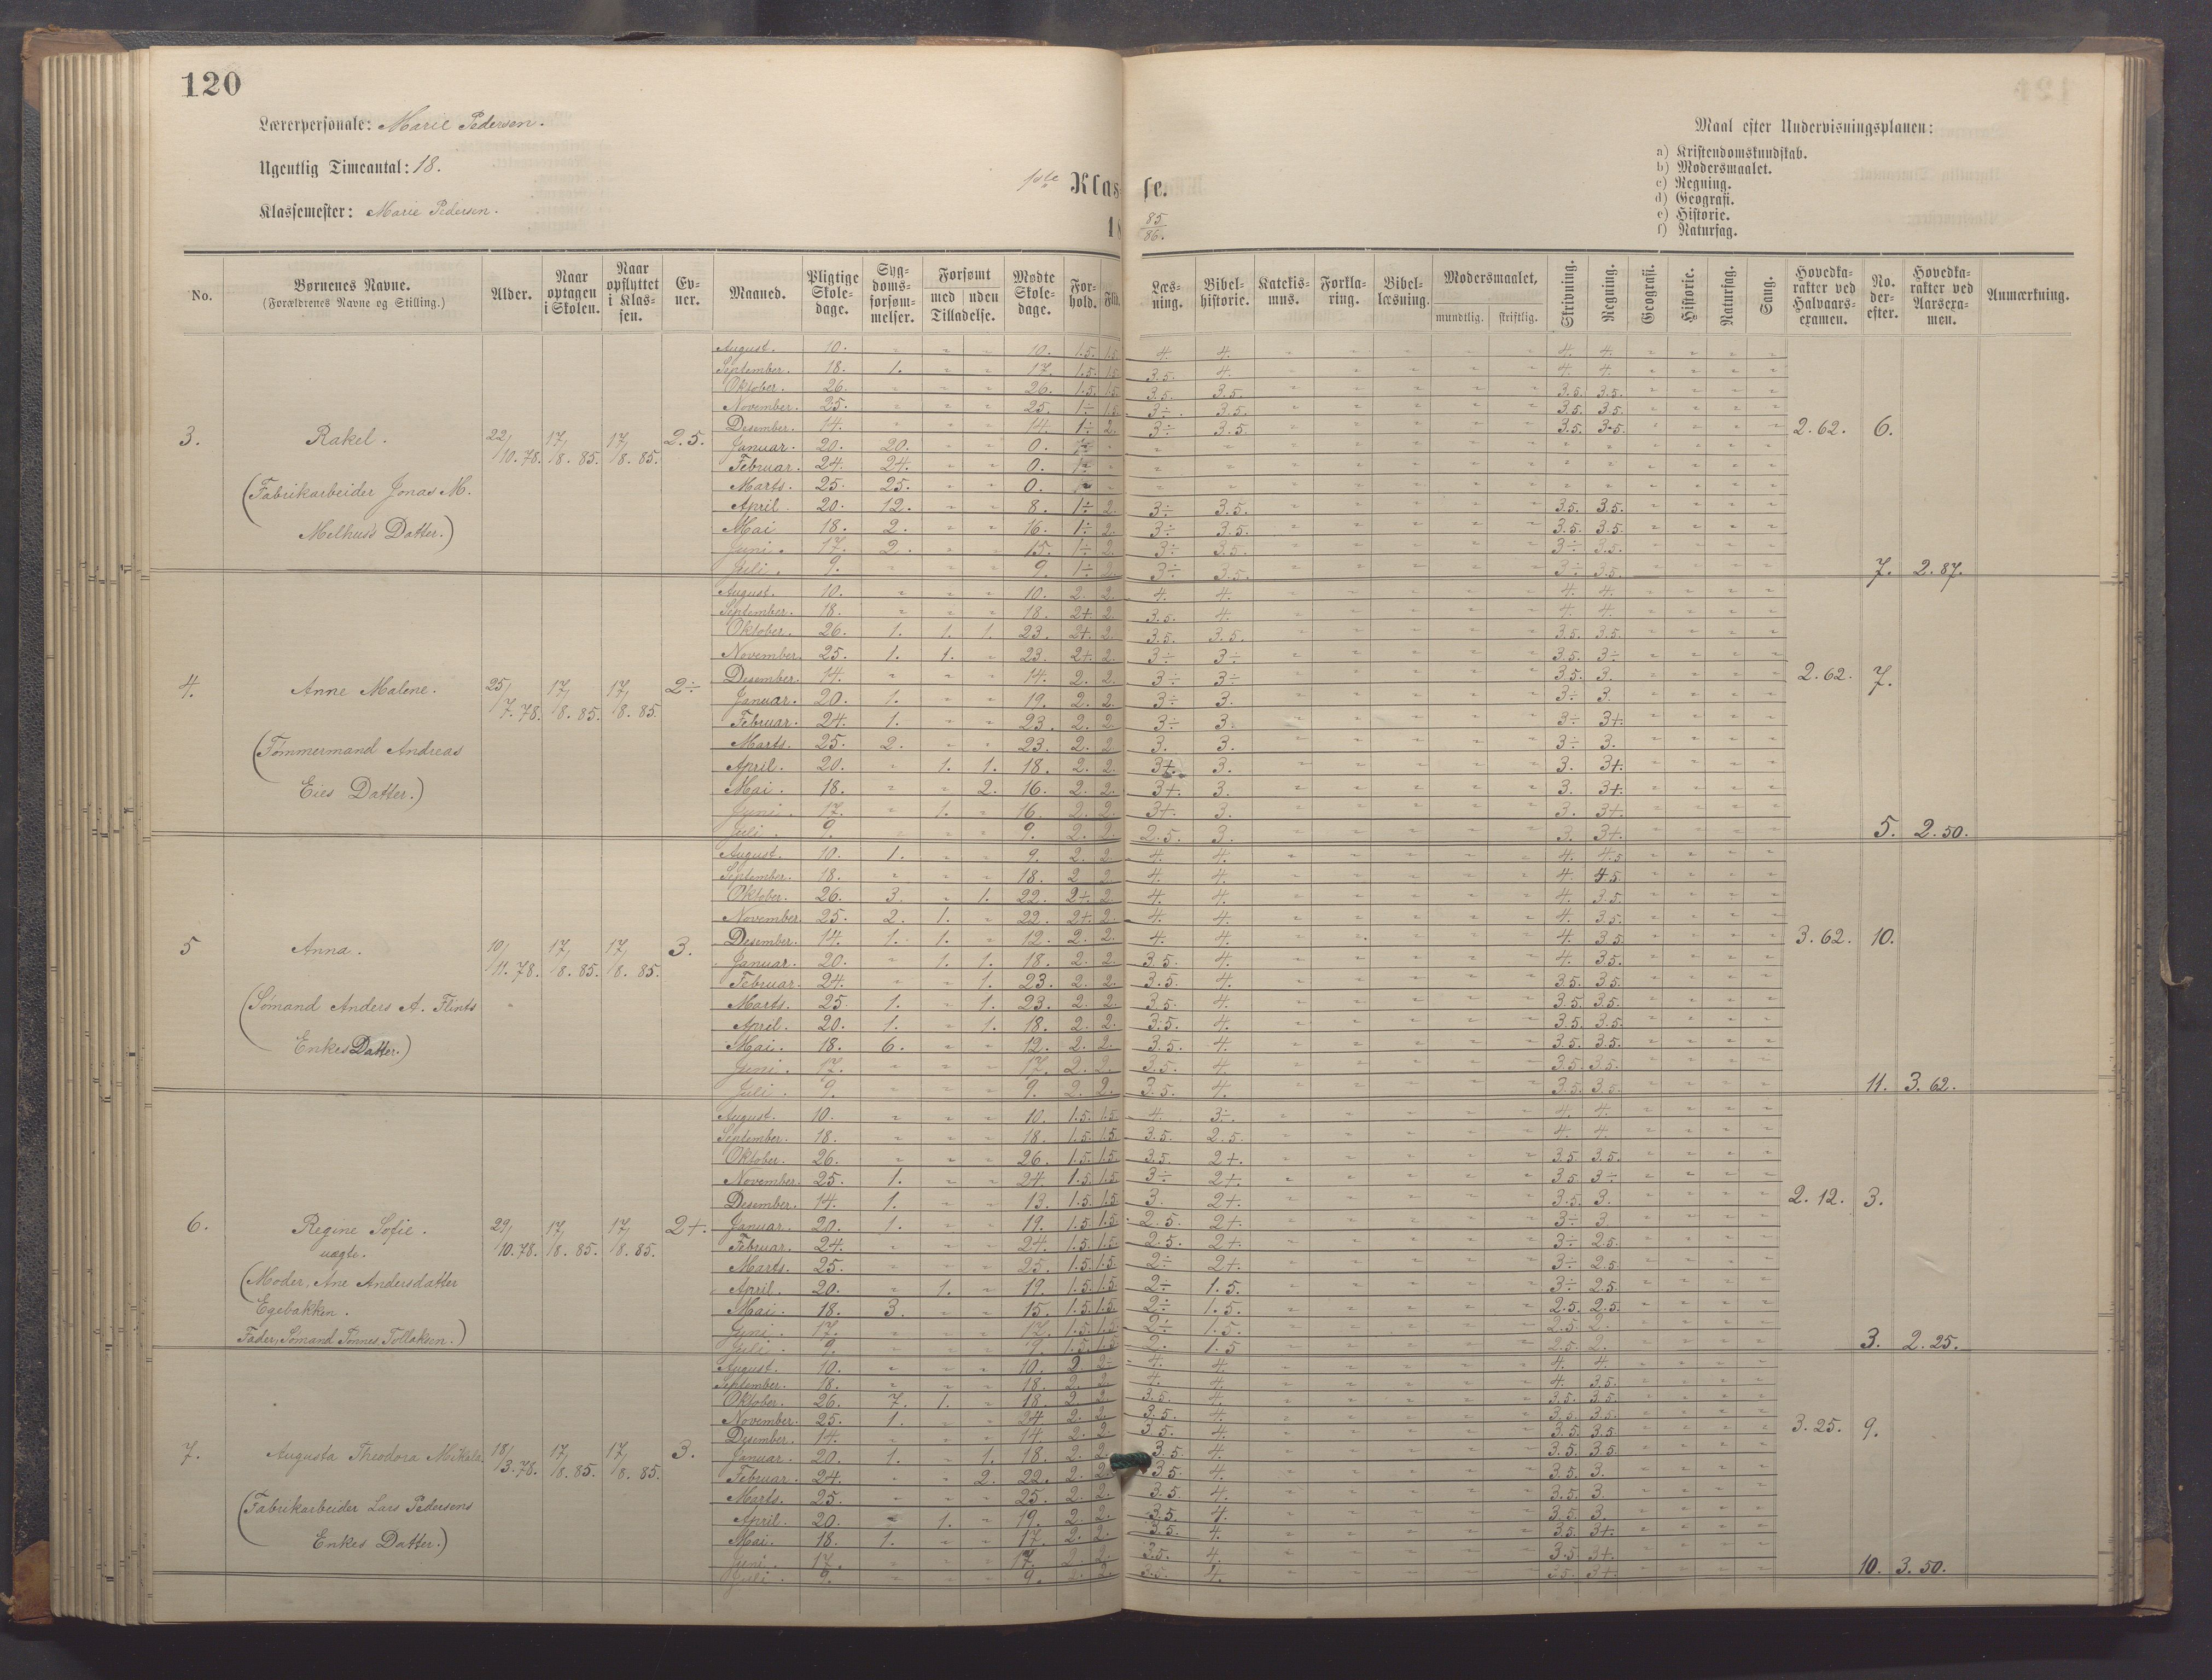 120
Lærerpersonale: Marie Pedersen.
Ugentlig Timeantal: 18.
Klassemester: Marie Pedersen.
1ste Klasse.
18 85/86.
Maal efter Undervisningsplanen:
a) Kristendomskundskab.
b) Modersmaalet.
c) Regning.
d) Geografi.
e) Historie.
f) Naturfag.
No. | Børnenes Navne. (Forældrenes Navne og Stilling.) | Alder. | Naar optagen i Skolen. | Naar opflyttet i Klassen. | Evner. | Maaned. | Pligtige Skoledage. | Sygdomsforsømmelser. | Forsømt med uden Tilladelse. | Mødte Skoledage. | Forhold. | Flid. | Læsning. | Bibelhistorie. | Katekismus. | Forklaring. | Bibellæsning. | Modersmaalet, mundtlig. skriftlig. | Skrivning. | Regning. | Geografi. | Historie. | Naturfag. | Sang. | Hovedkarakter ved Halvaarsexamen. | No. derefter. | Hovedkarakter ved Aarsexamen. | Anmærkning.
3. Rakel. 22/10.78. 17/8.85. 17/8.85. 2.5. 2.62. 6.
(Fabrikarbeider Jonas M.
Melhuss Datter.)
August. 10. " " " 10. 1.5. 1.5. 4. 4. 4. 4.
September. 18. 1. " " 17. 1.5. 1.5. 3.5. 4. 4. 4.
Oktober. 26. " " " 26. 1.5. 1.5. 3.5. 3.5. 3.5. 3.5.
November. 25. " " " 25. 1÷ 1.5. 3÷. 3.5. 3.5. 3.5.
Desember. 14. " " " 14. 1÷ 2. 3÷ 3.5 3.5. 3.5.
Januar. 20. 20. " " 0.
Februar. 24. 24. " " 0.
Marts. 25. 25. " " 0.
April. 20. 12. " " 8. 1÷ 2. 3÷ 3.5. 3.5. 3.5.
Mai 18. 2. " " 16. 1÷ 2. 3÷ 3.5. 3.5. 3.5.
Juni. 17. 2. " " 15. 1÷ 2. 3÷ 3.5. 3÷ 3.5.
Juli. 9. " " " 9. 1÷ 2. 3÷ 3.5. 3÷ 3.5. 7. 2.87.
4. Anne Malene. 25/7.78. 17/8.85. 17/8.85. 2÷ 2.62. 7.
(Tømmermand Andreas
Eies Datter.)
August. 10. " " " 10. 2. 2. 4. 4. 4. 4.
September. 18. " " " 18. 2+ 2. 3.5. 4. 4. 4.
Oktober. 26. 1. 1. 1. 23. 2+. 2. 3.5. 3.5. 3.5. 3.5.
November. 25. 1. 1. " 23. 2+. 2. 3÷ 3÷ 3.5. 3÷
Desember. 14. " " " 14. 2. 2. 3÷ 3÷ 3.5. 3.
Januar. 20. 1. " " 19. 2. 2. 3÷ 3. 3÷ 3.
Februar. 24. 1. " " 23. 2. 2. 3÷ 3. 3÷ 3+.
Marts. 25. 2. " " 23. 2. 2 3. 3. 3÷ 3.
April. 20. " 1. 1. 18. 2. 2. 3+. 3. 3. 3+.
Mai. 18. " " 2. 16. 2. 2. 3+. 3. 3. 3+.
Juni. 17. " 1. " 16. 2. 2. 3+. 3. 3. 3+.
Juli. 9. " " " 9. 2. 2. 2.5. 3. 3. 3+. 5. 2.50.
5 Anna. 10/11.78. 17/8.85. 17/8.85. 3. 3.62. 10.
(Sømand Anders A. Flints
Enkes Datter.)
August. 10. 1. " " 9. 2. 2. 4. 4. 4. 4.5
September. 18. " " " 18. 2 2. 4. 4. 4. 4.5.
Oktober. 26. 3. " 1. 22. 2+. 2 4. 4. 4. 3.5.
November. 25. 2. 1. " 22. 2+. 2. 4. 4. 4. 3.5.
Desember. 14. 1. 1. " 12. 2. 2. 4. 4. 4. 3.5.
Januar. 20. " 1. 1. 18. 2. 2. 3.5. 4. 4. 3.5.
Februar. 24. " " 1. 23. 2. 2. 3.5. 4. 3.5. 3.5.
Marts. 25. 1. " 1. 23. 2. 2. 3.5. 4. 3.5. 3.5.
April. 20. 1. " 1. 18. 2. 2. 3.5. 4. 3.5. 3.5.
Mai. 18. 6. " " 12. 2. 2. 3.5. 4. 3.5. 3.5.
Juni. 17. " " " 17. 2. 2. 3.5. 4. 3.5. 3.5.
Juli. 9. " " " 9. 2. 2. 3.5. 4. 3.5. 3.5. 11. 3.62.
6. Regine Sofie. 29/10.78. 17/8.85. 17/8.85. 2+. 2.12. 3.
uægte.
(Moder, Ane Andersdatter
Egebakken.
Fader, Sømand Tønnes Tollaksen.)
August. 10. " " " 10. 1.5. 1.5. 4. 3÷. 4. 4.
September. 18. " " " 18. 1.5. 1.5. 3.5. 2.5. 4. 4.
Oktober. 26. " " " 26. 1.5. 1.5. 3.5. 2+. 3.5 3.5.
November. 25. 1. " " 24. 1.5. 1.5. 3÷ 2+. 3.5. 3÷
Desember. 14. 1. " " 13. 1.5. 1.5. 3. 2+. 3.5. 3.
Januar. 20. 1. " " 19. 1.5. 1.5. 2.5. 2+. 3÷ 3.
Februar. 24. " " " 24. 1.5. 1.5. 2.5. 2+. 3÷ 2.5.
Marts. 25. " " " 25. 1.5. 1.5. 2÷ 2+. 3÷ 2.5.
April. 20. " 1. " 19. 1.5. 1.5. 2÷ 1.5. 3÷ 2.5.
Mai. 18. 3. " " 15. 1.5. 1.5. 2÷ 1.5. 2.5. 2.5.
Juni. 17. " " " 17. 1.5. 1.5. 2÷ 1.5. 2.5. 2.
Juli. 9. " " " 9. 1.5. 1.5. 2. 1.5 2.5. 2. 3. 2.25.
7. Augusta Theodora Mikale. 18/3.78. 17/8.85. 17/8.85. 3. 3.25. 9.
(Fabrikarbeider Lars Pedersens
Enkes Datter.)
August. 10. " " " 10. 2. 2÷ 4. 4. 4. 4.
September. 18. " " " 18. 2. 2. 4. 4. 4. 3.5.
Oktober. 26. 7. 1. " 18. 2. 2. 3.5. 4. 3.5. 3.5.
November. 25. 1. " " 24 2. 2. 3.5. 4. 3.5. 3.5.
Desember. 14. " " " 14 2. 2. 3.5. 4. 3.5. 3.5.
Januar. 20. 1. " 1. 18. 2. 2. 3.5 4. 3.5. 3.5.
Februar. 24. " " 2. 22. 2. 2. 3.5. 4. 3.5. 3.
Marts. 25. " " " 25. 2. 2. 3.5. 4. 3.5. 3.
April. 20. " 1. " 19. 2. 2. 3.5. 4. 3.5 3.
Mai. 18. 1. " " 17. 2. 2. 3.5. 4. 3.5. 3+.
Juni. 17. " " " 17. 2. 2. 3.5. 4. 3.5 3+.
Juli. 9. " " " 9. 2. 2. 3.5. 4. 3.5. 3+. 10. 3.50.